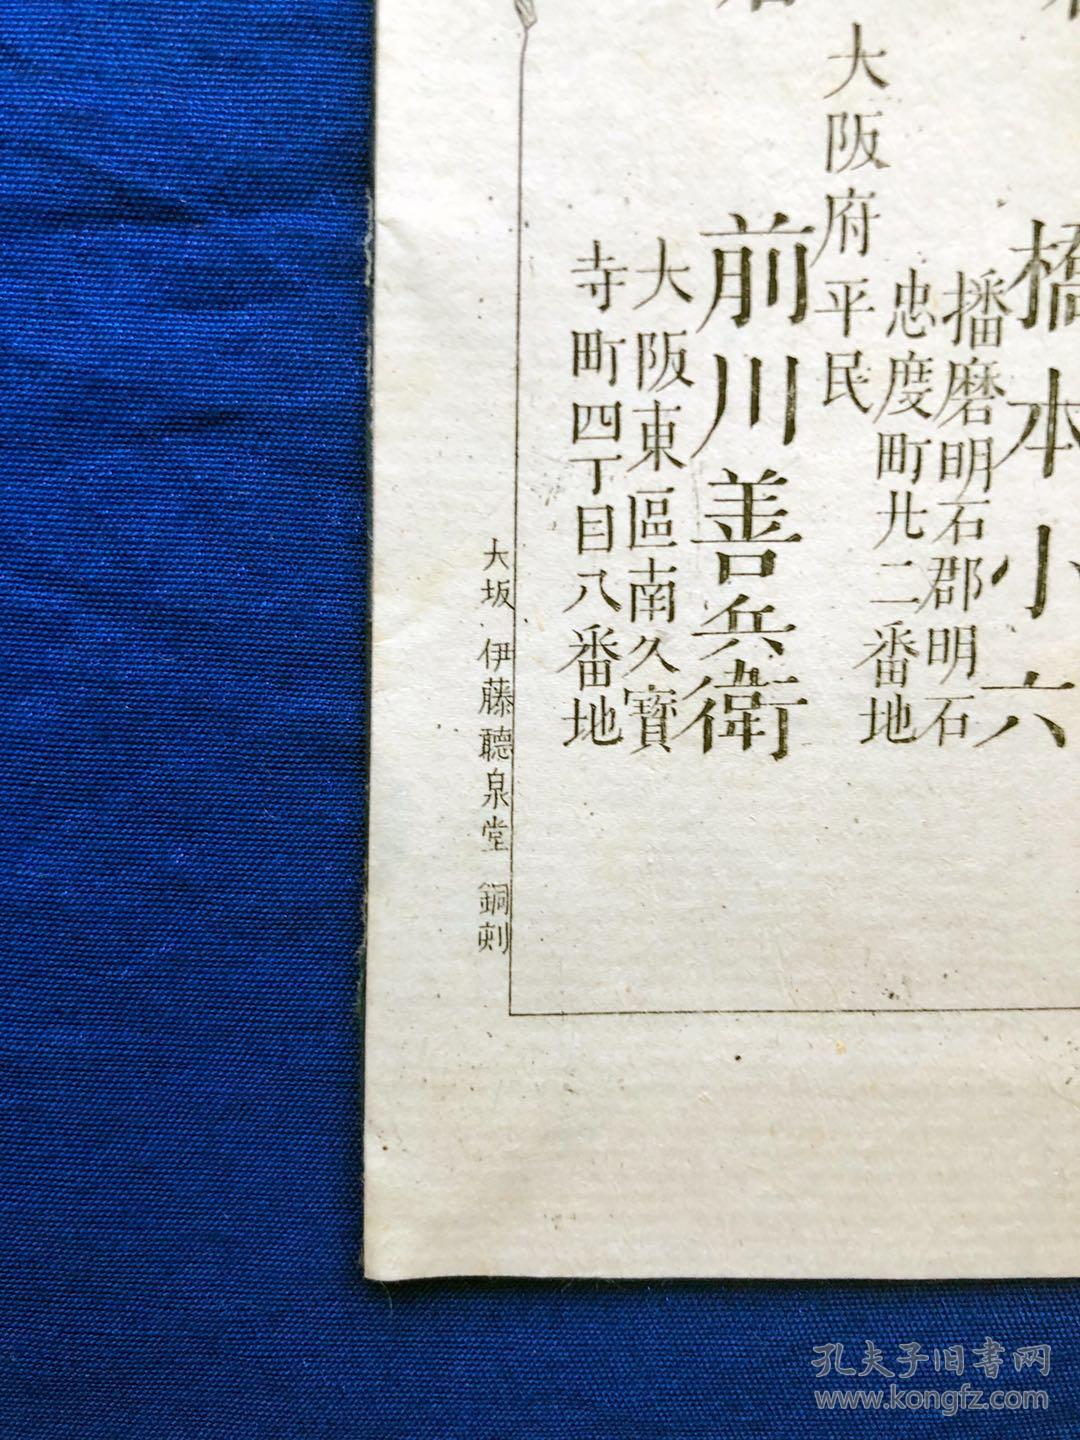 橋本小六
播磨明石郡明石
忠度町廿二番地
大阪府平民
前川善兵衛
大阪東區南久寶
寺町四丁目八番地
大坂 伊藤聽泉堂 銅刻
孔夫子旧書网
www.kongfz.com